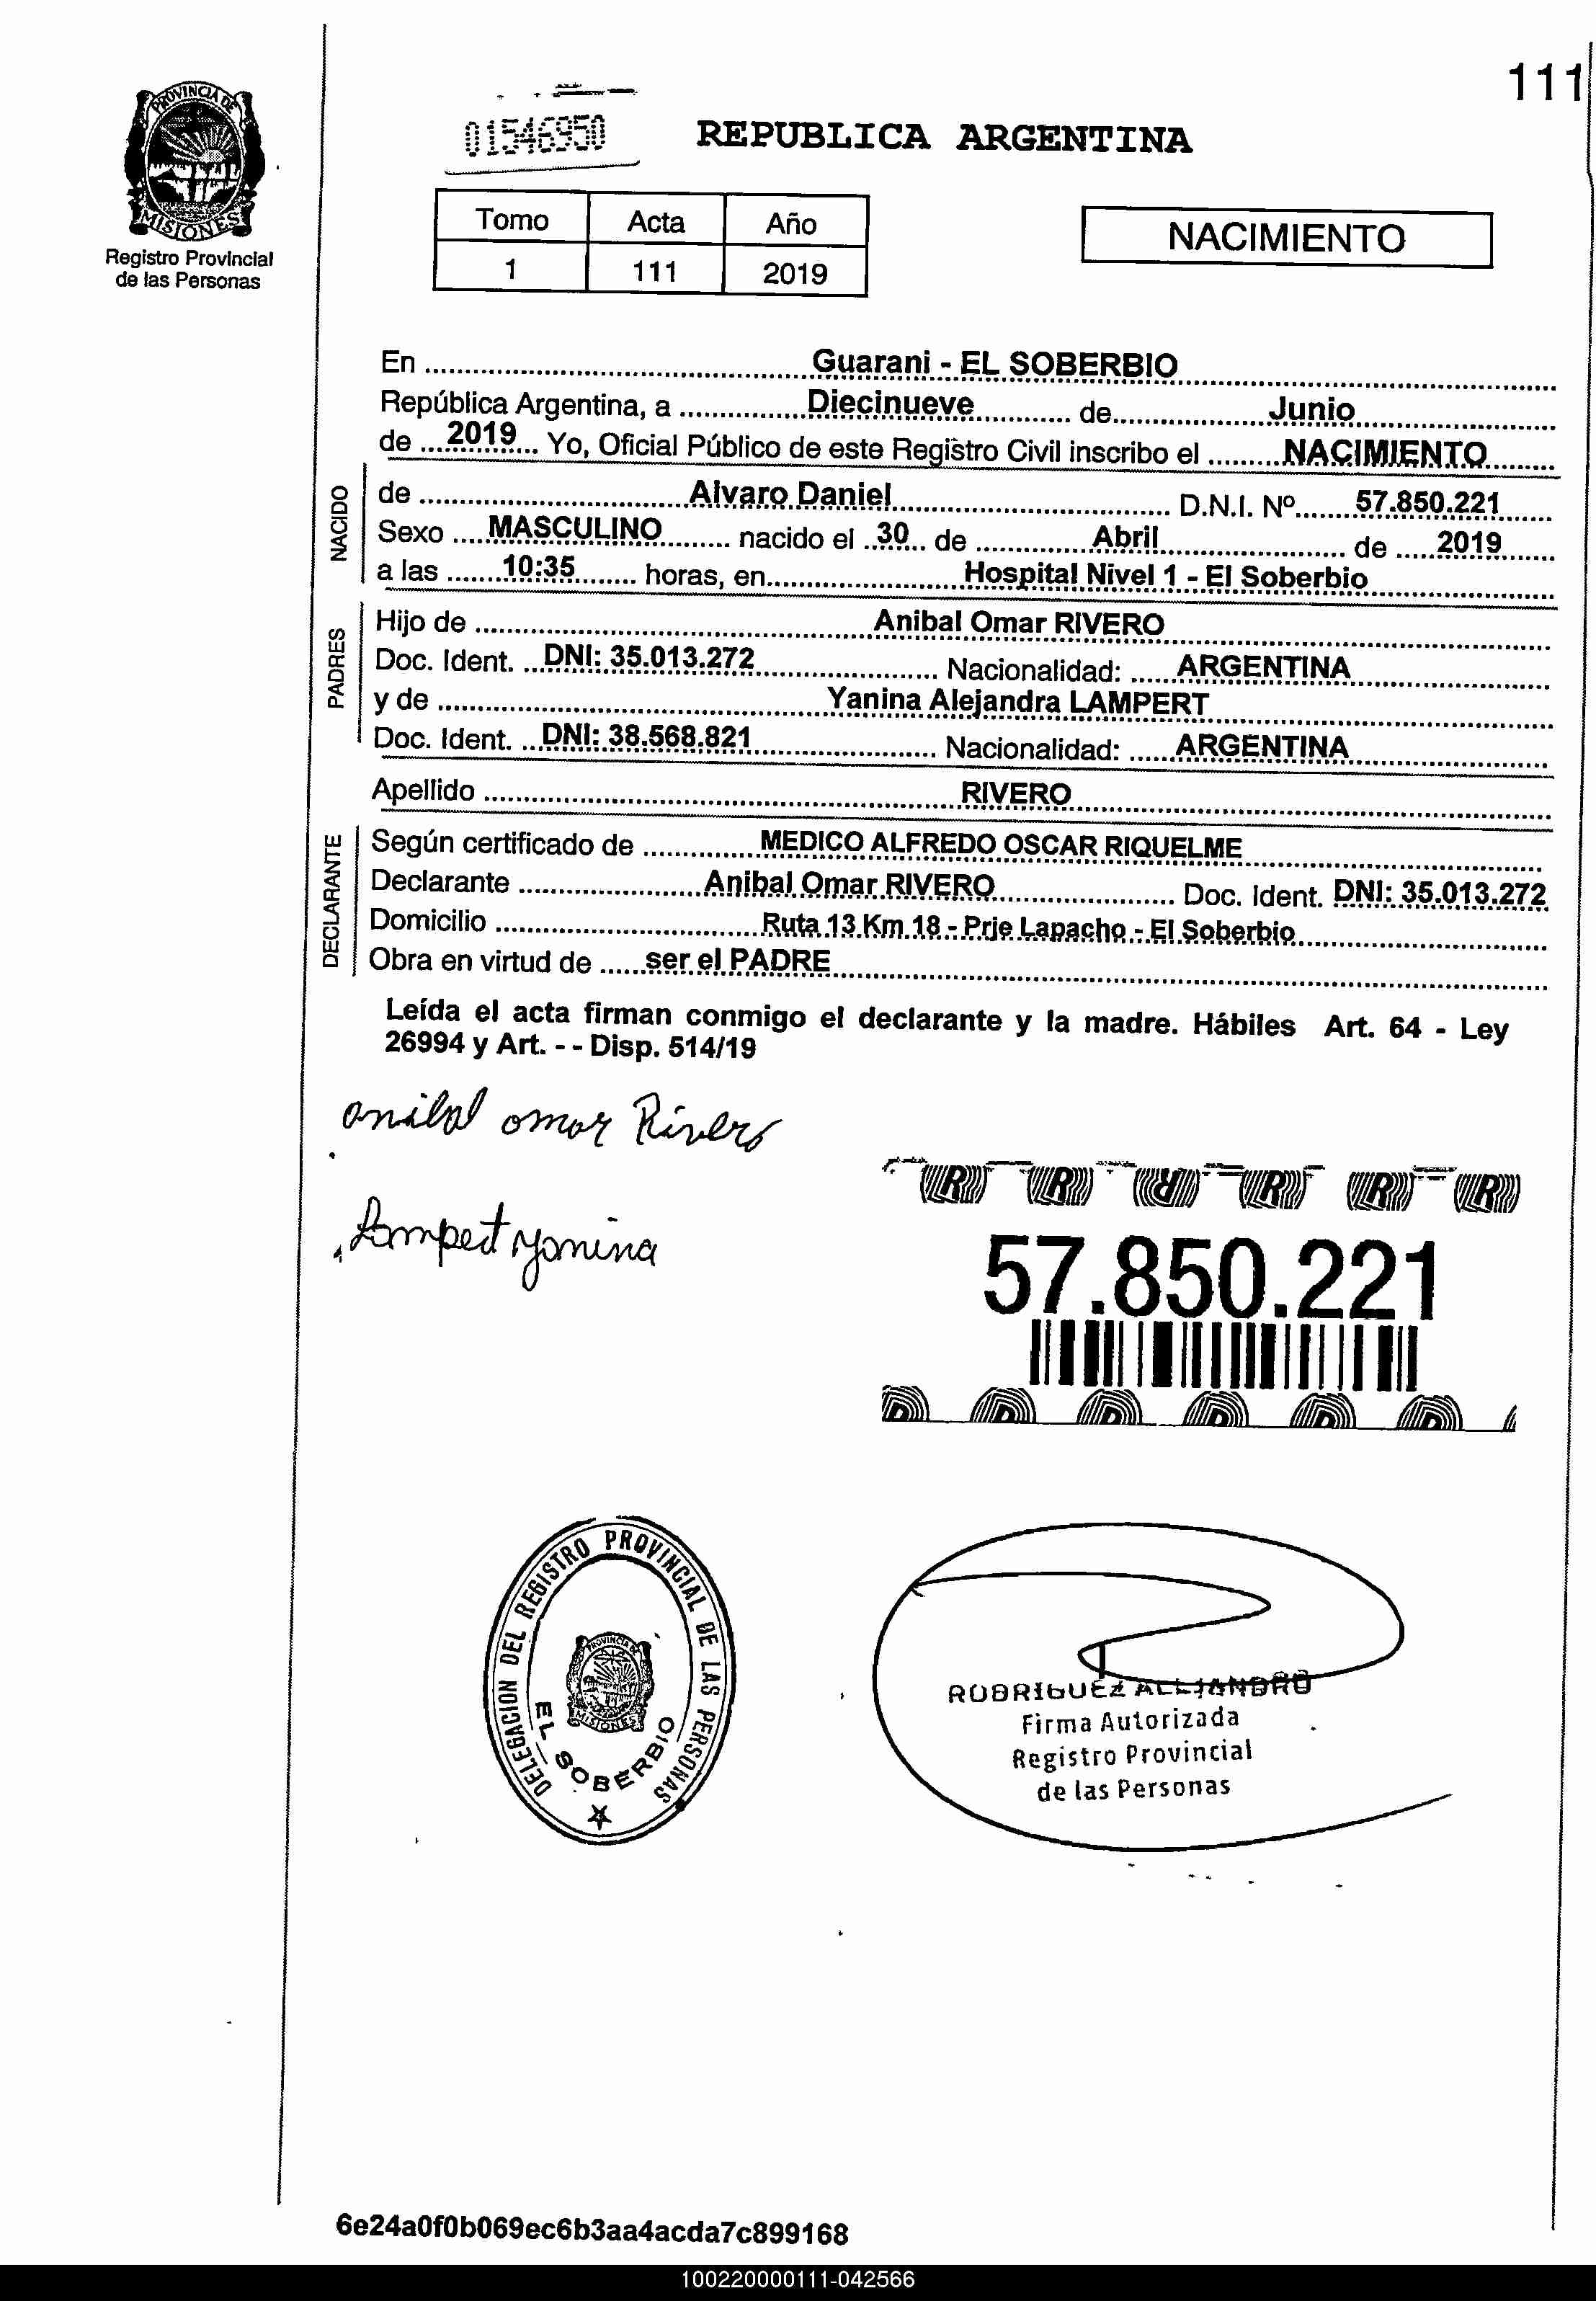 111
PROVINCIA DE
MISIONES
Registro Provincial
de las Personas
01546950
REPUBLICA ARGENTINA
Tomo Acta Año
1 111 2019
NACIMIENTO
En ........ Guarani - EL SOBERBIO ........
República Argentina, a ........ Diecinueve ........ de ........ Junio ........
de ... 2019 ... Yo, Oficial Público de este Registro Civil inscribo el ........ NACIMIENTO ........
NACIDO
de ........ Alvaro Daniel ........ D.N.I. Nº ........ 57.850.221 ........
Sexo .... MASCULINO ........ nacido el .. 30 .. de ........ Abril ........ de ..... 2019 ........
a las ....... 10:35 ........ horas, en ........ Hospital Nivel 1 - El Soberbio ........
PADRES
Hijo de ........ Anibal Omar RIVERO ........
Doc. Ident. ... DNI: 35.013.272 ........ Nacionalidad: ..... ARGENTINA ........
y de ........ Yanina Alejandra LAMPERT ........
Doc. Ident. ... DNI: 38.568.821 ........ Nacionalidad: ..... ARGENTINA ........
Apellido ........ RIVERO ........
DECLARANTE
Según certificado de ........ MEDICO ALFREDO OSCAR RIQUELME ........
Declarante ........ Anibal Omar RIVERO ........ Doc. Ident. DNI: 35.013.272
Domicilio ........ Ruta 13 Km 18 - Prje Lapacho - El Soberbio ........
Obra en virtud de ..... ser el PADRE ........
Leída el acta firman conmigo el declarante y la madre. Hábiles Art. 64 - Ley
26994 y Art. - - Disp. 514/19
anibal omar Rivero
Lampert yanina
57.850.221
DELEGACION DEL REGISTRO PROVINCIAL DE LAS PERSONAS
PROVINCIA DE
MISIONES
EL SOBERBIO
RODRIGUEZ ALEJANDRO
Firma Autorizada
Registro Provincial
de las Personas
6e24a0f0b069ec6b3aa4acda7c899168
100220000111-042566